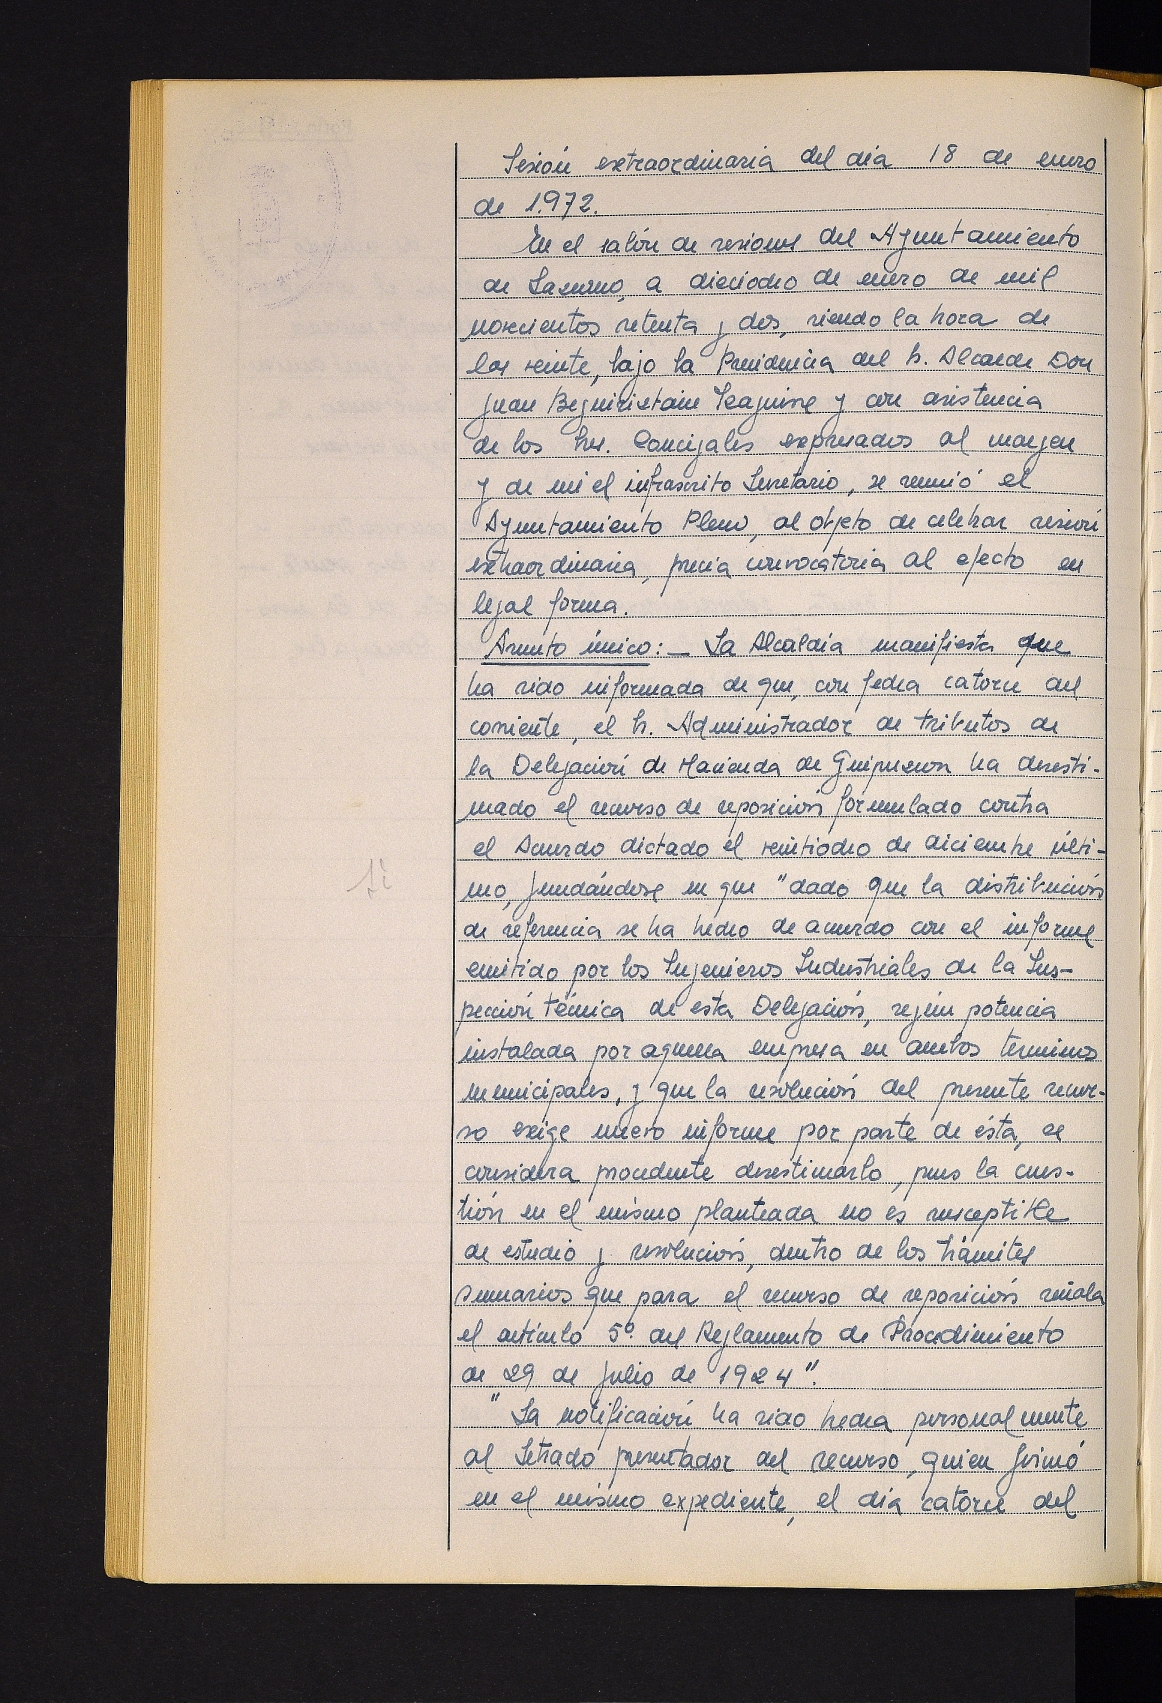 Sesión extraordinaria del día 18 de enero
de 1.972.
En el salón de sesiones del Ayuntamiento
de Lazcano, a dieciocho de enero de mil
novecientos setenta y dos, siendo la hora de
las veinte, bajo la Presidencia del Sr. Alcalde Don
Juan Beguiristain y con asistencia
de los Srs. Concejales expresados al margen
y de mi el infrascrito Secretario, se reunió el
Ayuntamiento Pleno, al objeto de celebrar sesión
extraordinaria, previa convocatoria al efecto en
legal forma.
Asunto único:- La Alcaldía manifiesta que
ha sido informada de que, con fecha catorce del
corriente, el Sr. Administrador de tributos de
la Delegación de Hacienda de Guipuzcoa ha desesti-
mado el recurso de reposición formulado contra
el Acuerdo dictado el veintiocho de diciembre últi-
mo, fundándose en que "dado que la distribución
de referencia se ha hecho de acuerdo con el informe
emitido por los Ingenieros Industriales de la Ins-
pección técnica de esta Delegación, según potencia
instalada por aquella empresa en ambos términos
municipales, y que la resolución del presente recur-
so exige nuevo informe por parte de ésta, se
considera procedente desestimarlo, pues la cues-
tión en el mismo planteada no es susceptible
de estudio y resolución, dentro de los trámites
sumarios que para el recurso de reposición señala
el artículo 5º del Reglamento de Procedimiento
de 29 de Julio de 1924".
" La notificación ha sido hecha personalmente
al Letrado presentador del recurso, quien firmó
en el mismo expediente, el día catorce del